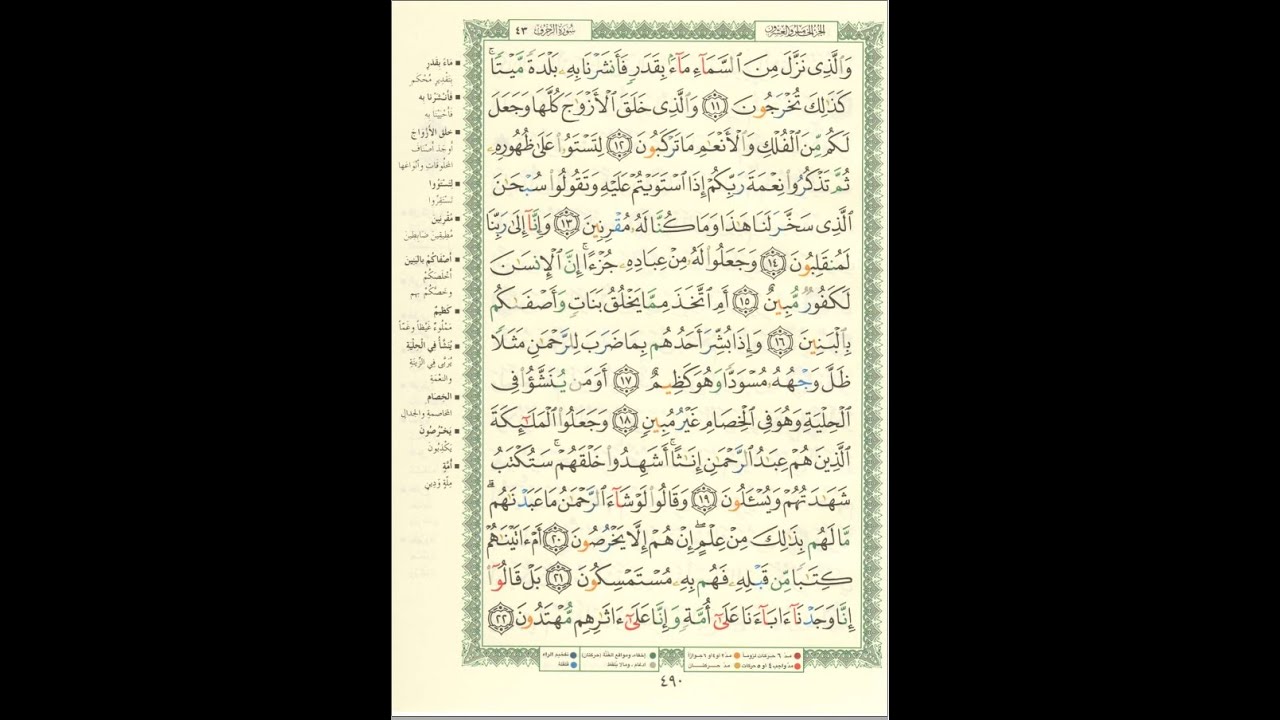 الجزء الخامس والعشرون
سورة الزخرف ٤٣
وَٱلَّذِى نَزَّلَ مِنَ ٱلسَّمَآءِ مَآءًۢ بِقَدَرٍ فَأَنشَرْنَا بِهِۦ بَلْدَةً مَّيْتًا ۚ
كَذَٰلِكَ تُخْرَجُونَ ١١ وَٱلَّذِى خَلَقَ ٱلْأَزْوَٰجَ كُلَّهَا وَجَعَلَ
لَكُم مِّنَ ٱلْفُلْكِ وَٱلْأَنْعَٰمِ مَا تَرْكَبُونَ ١٢ لِتَسْتَوُۥا۟ عَلَىٰ ظُهُورِهِۦ
ثُمَّ تَذْكُرُوا۟ نِعْمَةَ رَبِّكُمْ إِذَا ٱسْتَوَيْتُمْ عَلَيْهِ وَتَقُولُوا۟ سُبْحَٰنَ
ٱلَّذِى سَخَّرَ لَنَا هَٰذَا وَمَا كُنَّا لَهُۥ مُقْرِنِينَ ١٣ وَإِنَّآ إِلَىٰ رَبِّنَا
لَمُنقَلِبُونَ ١٤ وَجَعَلُوا۟ لَهُۥ مِنْ عِبَادِهِۦ جُزْءًا ۚ إِنَّ ٱلْإِنسَٰنَ
لَكَفُورٌ مُّبِينٌ ١٥ أَمِ ٱتَّخَذَ مِمَّا يَخْلُقُ بَنَاتٍ وَأَصْفَىٰكُم
بِٱلْبَنِينَ ١٦ وَإِذَا بُشِّرَ أَحَدُهُم بِمَا ضَرَبَ لِلرَّحْمَٰنِ مَثَلًا
ظَلَّ وَجْهُهُۥ مُسْوَدًّا وَهُوَ كَظِيمٌ ١٧ أَوَمَن يُنَشَّؤُا۟ فِى
ٱلْحِلْيَةِ وَهُوَ فِى ٱلْخِصَامِ غَيْرُ مُبِينٍ ١٨ وَجَعَلُوا۟ ٱلْمَلَٰٓئِكَةَ
ٱلَّذِينَ هُمْ عِبَٰدُ ٱلرَّحْمَٰنِ إِنَٰثًا ۚ أَشَهِدُوا۟ خَلْقَهُمْ ۚ سَتُكْتَبُ
شَهَٰدَتُهُمْ وَيُسْـَٔلُونَ ١٩ وَقَالُوا۟ لَوْ شَآءَ ٱلرَّحْمَٰنُ مَا عَبَدْنَٰهُم ۗ
مَّا لَهُم بِذَٰلِكَ مِنْ عِلْمٍ ۖ إِنْ هُمْ إِلَّا يَخْرُصُونَ ٢٠ أَمْ ءَاتَيْنَٰهُمْ
كِتَٰبًا مِّن قَبْلِهِۦ فَهُم بِهِۦ مُسْتَمْسِكُونَ ٢١ بَلْ قَالُوٓا۟
إِنَّا وَجَدْنَآ ءَابَآءَنَا عَلَىٰٓ أُمَّةٍ وَإِنَّا عَلَىٰٓ ءَاثَٰرِهِم مُّهْتَدُونَ ٢٢
ماءً بقدَرٍ
بتقديرٍ مُحكمٍ
فأنشرنا به
فأحيينا به
خلق الأزواج
أوجد أصناف
المخلوقات وأنواعها
لتستووا
لتستقروا
مُقرنين
مُطيقين ضابطين
أصفاكم بالبنين
أخلصكم
وخصّكم بهم
كظيم
مملوءٌ غيظاً وغمّاً
يُنشّأ في الحلية
يُربّى في الزينة
والنعمة
الخصام
المخاصمة والجدال
يخرصون
يكذبون
أمّةٍ
ملّةٍ ودينٍ
مدّ ٦ حركات لزوماً مدّ ٢ او ٤ او ٦ جوازاً
مدّ واجب ٤ او ٥ حركات مدّ حركتان
إخفاء، ومواقع الغُنّة (حركتان) تفخيم الراء
ادغام، ومالا يُلفظ قلقلة
٤٩٠